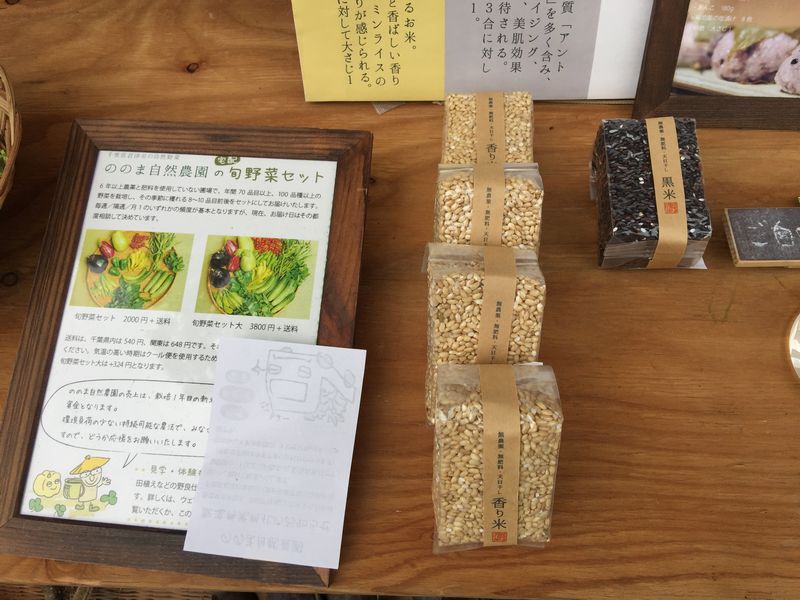 るお米。
と香ばしい香り
ミンライスの
りが感じられる。
に対して大さじ1
質「アント
」を多く含み、
イジング、
、美肌効果
待される。
3合に対し
1。
あんこ 180g
千葉県君津市の自然野菜
ののま自然農園の宅配旬野菜セット
6年以上農薬と肥料を使用していない圃場で、年間70品目以上、100品種以上の
野菜を栽培し、その季節に穫れる8〜10品目前後をセットにしてお届けいたします。
毎週／隔週／月1のいずれかの頻度が基本となりますが、現在、お届け日はその都
度相談して決めています。
旬野菜セット 2000円+送料
旬野菜セット大 3800円+送料
送料は、千葉県内は540円、関東は648円です。そ
ください。気温の高い時期はクール便を使用するため
旬野菜セット大は+324円となります。
ののま自然農園の売上は、栽培1年目の新
資金となります。
環境負荷の少ない持続可能な農法で、みな
すので、どうか応援をお願いいたします。
見学・体験
田植えなどの野良仕
す。詳しくは、ウェ
覧いただくか、この
無農薬・無肥料・天日干し
香り
無農薬・無肥料・天日干し
無農薬・無肥料・天日干し
無農薬・無肥料・天日干し
香り米
無農薬・無肥料・天日干し
黒米